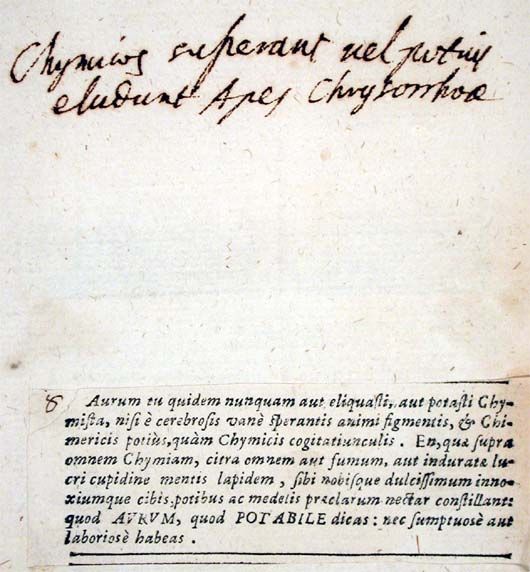 Chymicos superant vel potius
eludunt Apes Chrysorrhoæ
8 Aurum tu quidem nunquam aut eliquasti, aut potasti Chy-
mista, nisi è cerebrosis vanè sperantis animi figmentis, & Chi-
mericis potiùs, quàm Chymicis cogitatiunculis. En, quæ supra
omnem Chymiam, citra omnem aut fumum, aut induratæ lu-
cri cupidine mentis lapidem, sibi nobisque dulcissimum inno-
xiumque cibis potibus ac medelis præclarum nectar constillant:
quod AVRVM, quod POTABILE dicas: nec sumptuosè aut
laboriosè habeas.